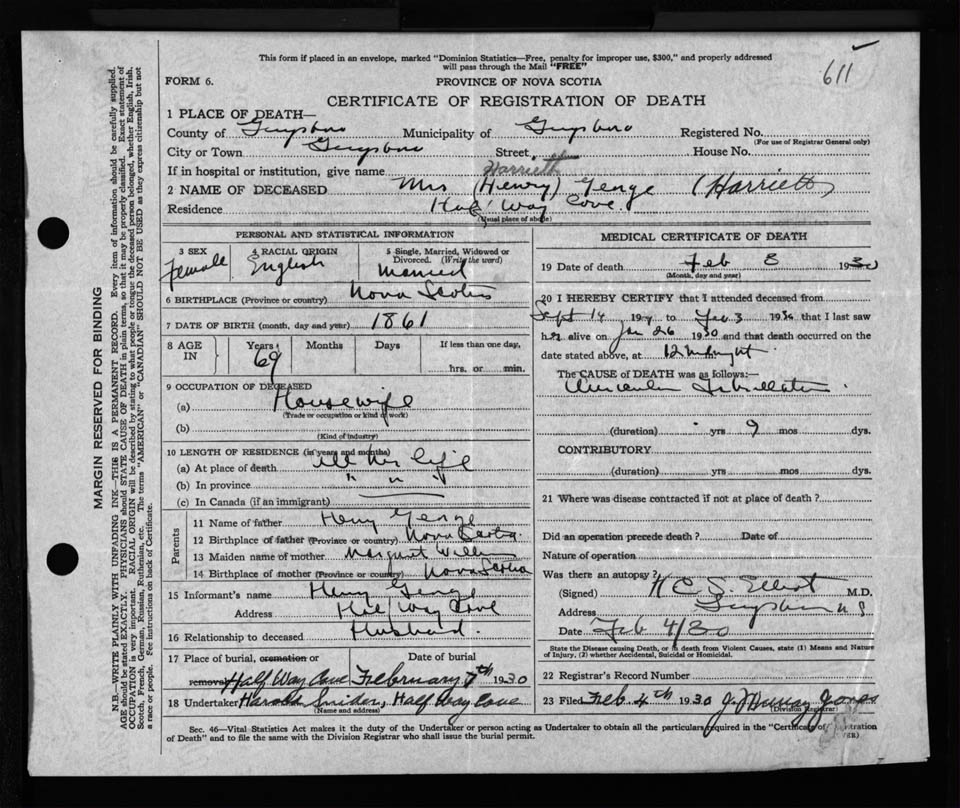 This form if placed in an envelope, marked "Dominion Statistics—Free, penalty for improper use, $300," and properly addressed
will pass through the Mail "FREE"
611
FORM 6.
PROVINCE OF NOVA SCOTIA
CERTIFICATE OF REGISTRATION OF DEATH
1 PLACE OF DEATH—
County of Guysboro Municipality of Guysboro Registered No.
(For use of Registrar General only)
City or Town Guysboro Street House No.
If in hospital or institution, give name Harriett
2 NAME OF DECEASED Mrs (Henry) George (Harriett)
Residence Half Way Cove.
(Usual place of abode)
PERSONAL AND STATISTICAL INFORMATION
3 SEX Female
4 RACIAL ORIGIN English
5 Single, Married, Widowed or Divorced. (Write the word) Married
6 BIRTHPLACE (Province or country) Nova Scotia
7 DATE OF BIRTH (month, day and year) 1861
8 AGE IN Years 69 Months Days If less than one day, hrs. or min.
9 OCCUPATION OF DECEASED
(a) Housewife
(Trade or occupation or kind of work)
(b)
(Kind of industry)
10 LENGTH OF RESIDENCE (in years and months)
(a) At place of death all her life
(b) In province " " "
(c) In Canada (if an immigrant)
Parents
11 Name of father Henry George
12 Birthplace of father (Province or country) Nova Scotia
13 Maiden name of mother Margaret
14 Birthplace of mother (Province or country) Nova Scotia
15 Informant's name Henry George
Address Half Way Cove
16 Relationship to deceased Husband.
17 Place of burial, cremation or removal Half Way Cove Date of burial February 7th 1930
18 Undertaker Harold Snider, Half Way Cove
(Name and address)
MEDICAL CERTIFICATE OF DEATH
19 Date of death Feb 3 1930
(Month, day and year)
20 I HEREBY CERTIFY that I attended deceased from
Sept 14 19 to Feb 3 1930 that I last saw
her alive on Jan 26 1930 and that death occurred on the
date stated above, at 12 midnight
The CAUSE OF DEATH was as follows:
Auricular Fibrillation.
(duration) yrs 9 mos dys.
CONTRIBUTORY
(duration) yrs mos dys.
21 Where was disease contracted if not at place of death?
Did an operation precede death? Date of
Nature of operation
Was there an autopsy?
(Signed) C. S. Elliot M.D.
Address Guysboro N.S
Date Feb 4/30
State the Disease causing Death, or in death from Violent Causes, state (1) Means and Nature
of Injury, (2) whether Accidental, Suicidal or Homicidal.
22 Registrar's Record Number
23 Filed Feb. 4th 1930 J. Murray Jones
(Division Registrar)
Sec. 46—Vital Statistics Act makes it the duty of the Undertaker or person acting as Undertaker to obtain all the particulars required in the "Certificate of Registration
of Death" and to file the same with the Division Registrar who shall issue the burial permit. (OVER)
MARGIN RESERVED FOR BINDING
N.B.—WRITE PLAINLY WITH UNFADING INK—THIS IS A PERMANENT RECORD. Every item of information should be carefully supplied.
AGE should be stated EXACTLY. PHYSICIANS should STATE CAUSE OF DEATH in plain terms, so that it may be properly classified. Exact statement of
OCCUPATION is very important. RACIAL ORIGIN will be described by stating to what people or tongue the deceased person belonged, whether English, Irish,
Scotch, French, German, Russian, Ruthenian, etc. The terms "AMERICAN" or "CANADIAN" SHOULD NOT BE USED as they express citizenship but not
a race or people. See instructions on back of Certificate.